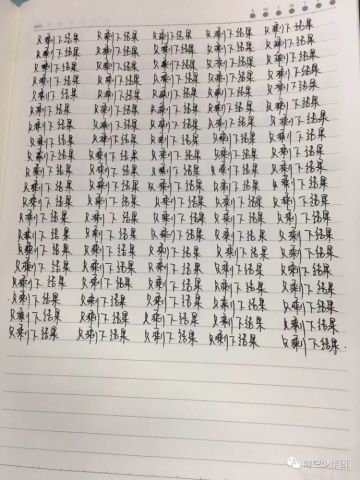 只剩下结果 只剩下结果 只剩下结果 只剩下结果 只剩下结果
只剩下结果 只剩下结果 只剩下结果 只剩下结果 只剩下结果
只剩下结果 只剩下结果 只剩下结果 只剩下结果 只剩下结果
只剩下结果 只剩下结果 只剩下结果 只剩下结果 只剩下结果
只剩下结果 只剩下结果 只剩下结果 只剩下结果 只剩下结果
只剩下结果 只剩下结果 只剩下结果 只剩下结果 只剩下结果
只剩下结果 只剩下结果 只剩下结果 只剩下结果 只剩下结果
只剩下结果 只剩下结果 只剩下结果 只剩下结果 只剩下结果
只剩下结果 只剩下结果 只剩下结果 只剩下结果 只剩下结果
只剩下结果 只剩下结果 只剩下结果 只剩下结果 只剩下结果
只剩下结果 只剩下结果 只剩下结果 只剩下结果 只剩下结果
只剩下结果 只剩下结果 只剩下结果 只剩下结果 只剩下结果
只剩下结果 只剩下结果 只剩下结果 只剩下结果 只剩下结果
只剩下结果 只剩下结果 只剩下结果 只剩下结果 只剩下结果
只剩下结果 只剩下结果 只剩下结果 只剩下结果 只剩下结果
只剩下结果 只剩下结果 只剩下结果 只剩下结果 只剩下结果
只剩下结果 只剩下结果 只剩下结果 只剩下结果 只剩下结果
只剩下结果 只剩下结果 只剩下结果 只剩下结果 只剩下结果
只剩下结果 只剩下结果 只剩下结果 只剩下结果 只剩下结果
只剩下结果 只剩下结果 只剩下结果 只剩下结果 只剩下结果.
时空少年团